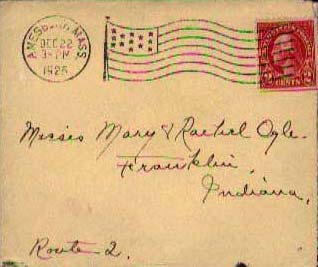 AMESBURY, MASS
DEC 22
3-PM
1925
2 CENTS 2
Misses Mary & Rachel Ogle.
Franklin,
Indiana,
Route 2.